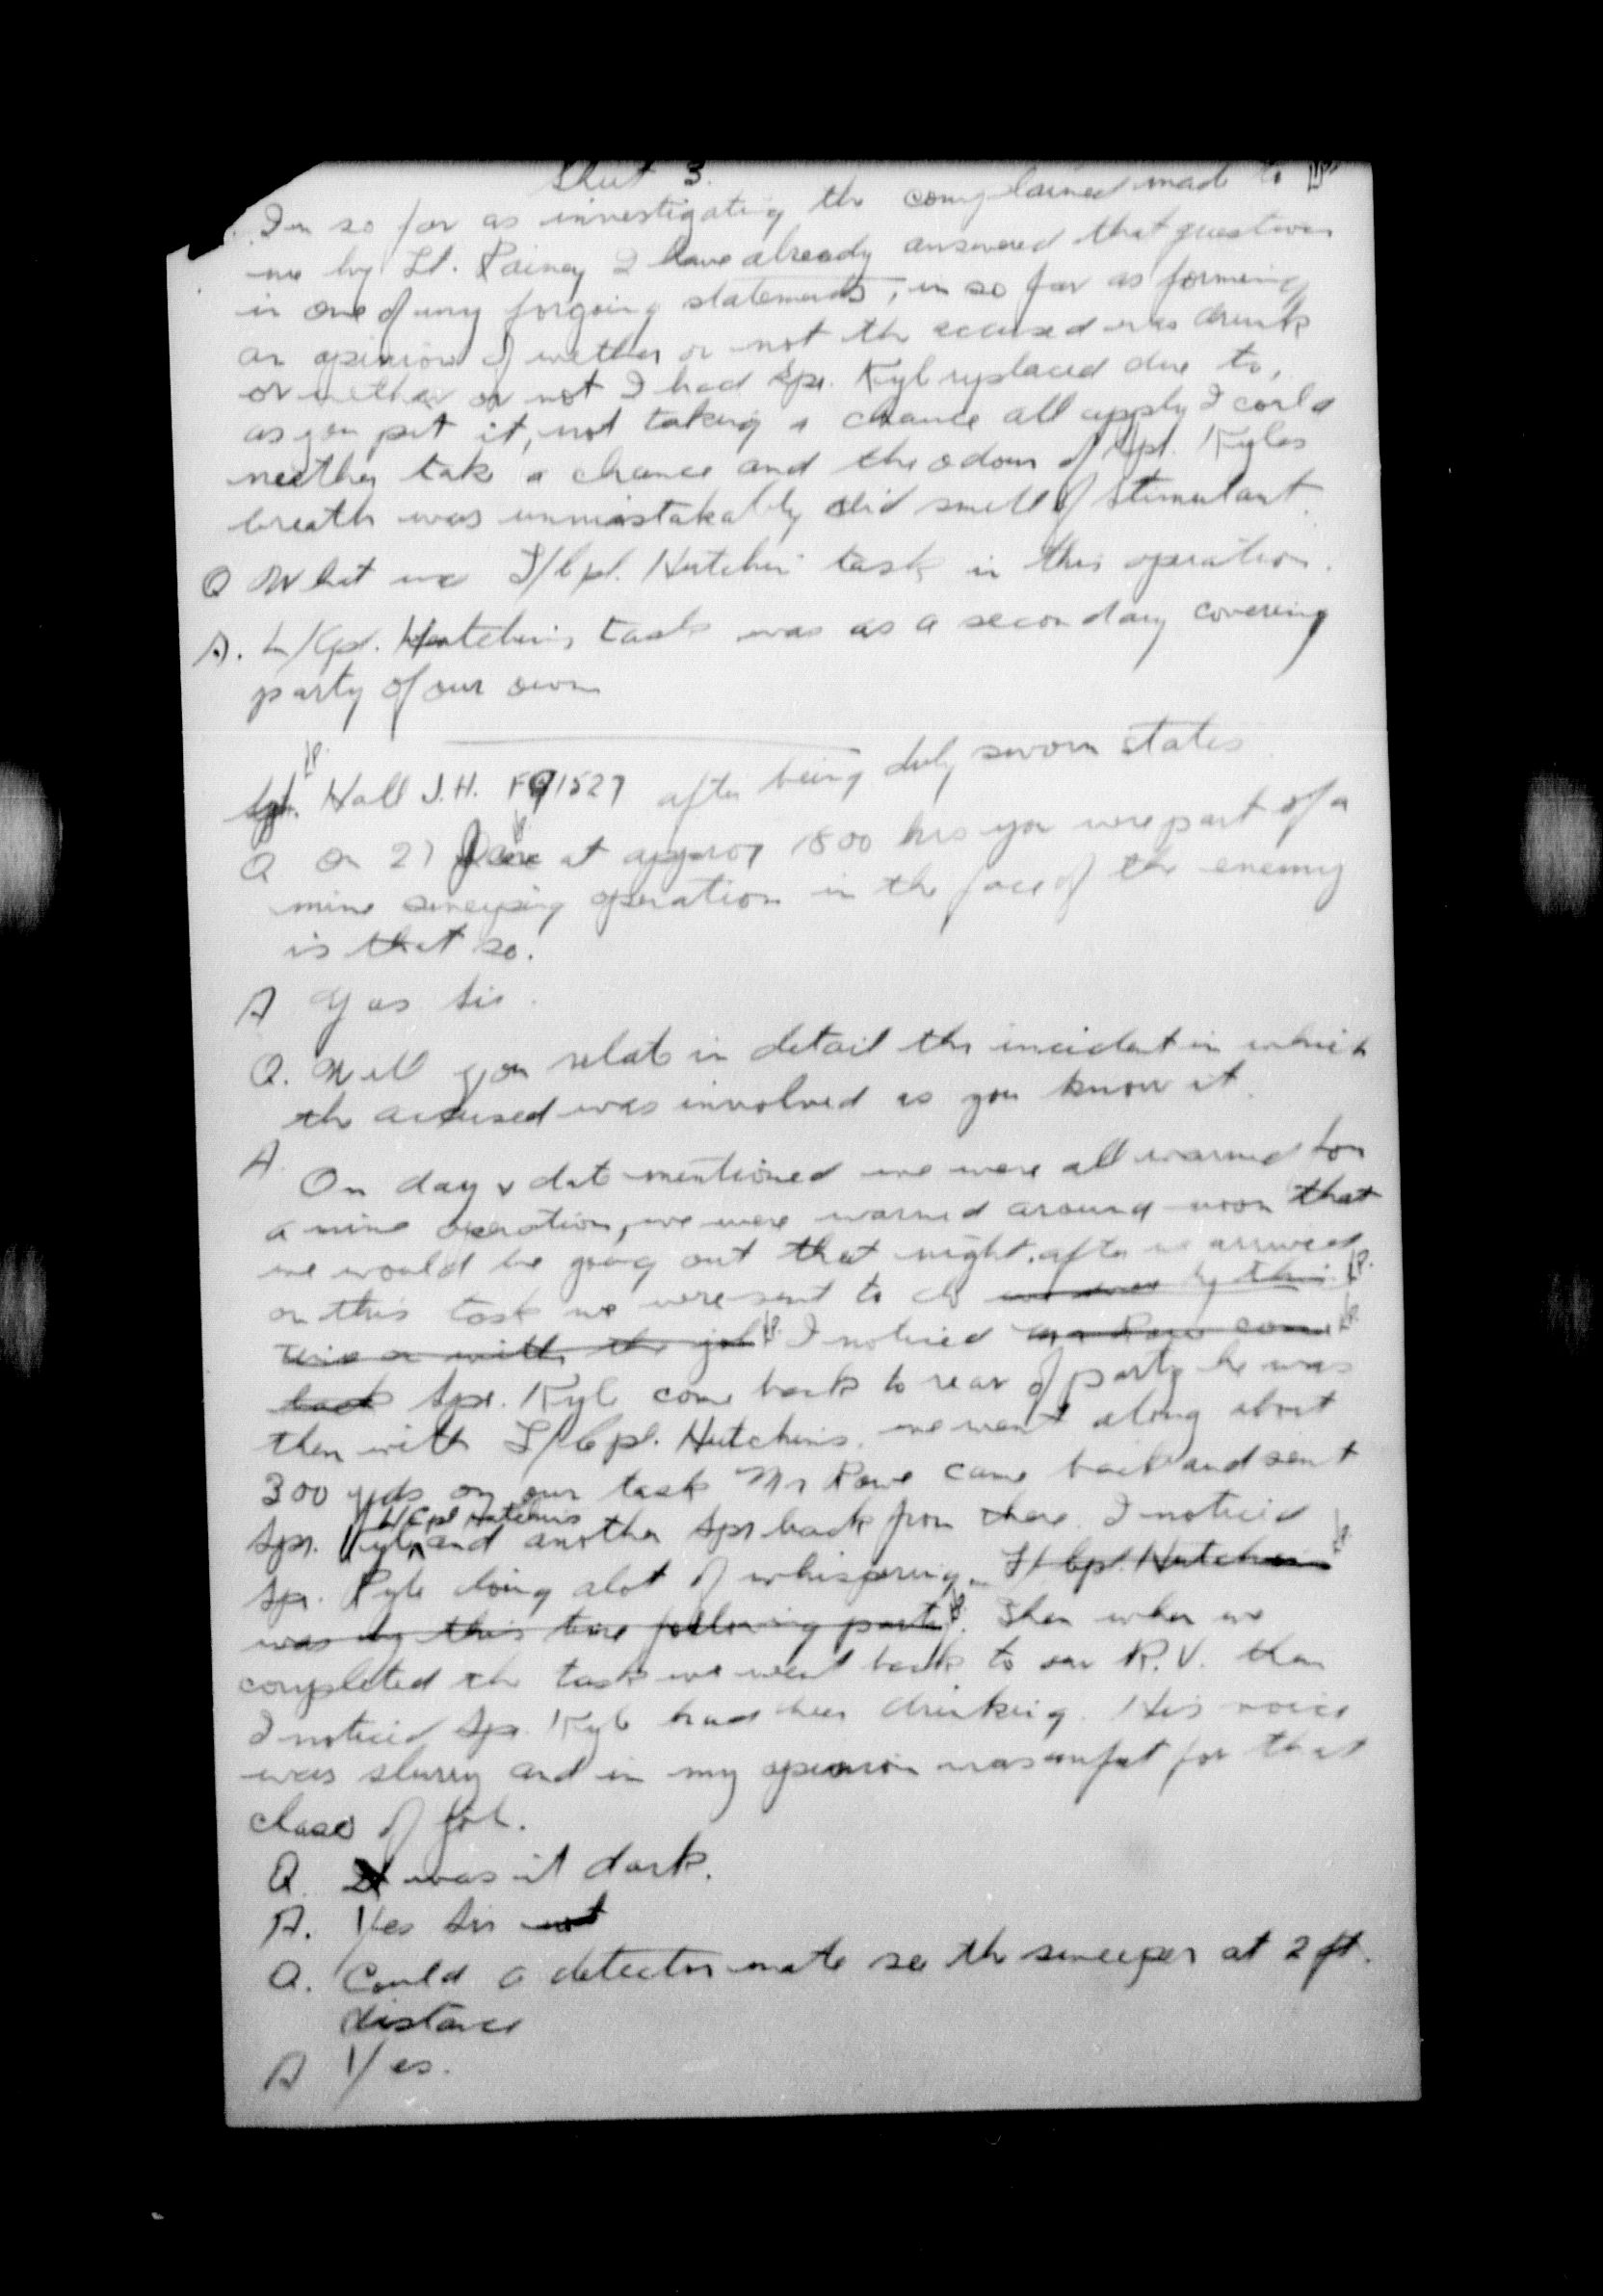 Sheet 3.
In so far as investigating the complained made to
me by Lt. Rainey I have already answered that question
in one of my forgoing statements, in so far as forming
an opinion of wether or not the accused was drunk
or wether or not I had Spr. Kyle replaced due to,
as you put it, not taking a chance all apply I could
neither take a chance and the odour of Spr. Kyles
breath was unmistakably did smell of stimulant.
Q What was L/Cpl. Hutchins task in this operation.
A. L/Cpl. Hutchins task was as a secondary covering
party of our own
Spr. Hall J.H. F91527 after being duly sworn states
Q On 27 at approx 1800 hrs you were part of a
mine sweeping operation in the face of the enemy
is that so.
A Yes Sir.
Q. Will you relate in detail the incident in which
the accused was involved as you know it.
A.
On day & date mentioned we were all warned for
a mine operation, we were warned around noon that
we would be going out that night. after we arrived
on this task we were sent to do by this
time on with the job I noticed Mr Rowe come
back Spr. Kyle come back to rear of party he was
then with L/Cpl. Hutchins. we went along about
300 yds on our task Mr Rowe came back and sent
L/Cpl Hutchins
Spr. Kyle and another Spr back from there. I noticed
Spr. Kyle doing alot of whispering. L/Cpl. Hutchins
was by this time following party. Then when we
completed the task we went back to our R.V. then
I noticed Spr. Kyle had been drinking. His voice
was slurry and in my opinion was unfit for that
class of job.
Q. was it dark.
A. Yes Sir not
Q. Could a detector mate see the sweeper at 2 ft.
distance
A Yes.